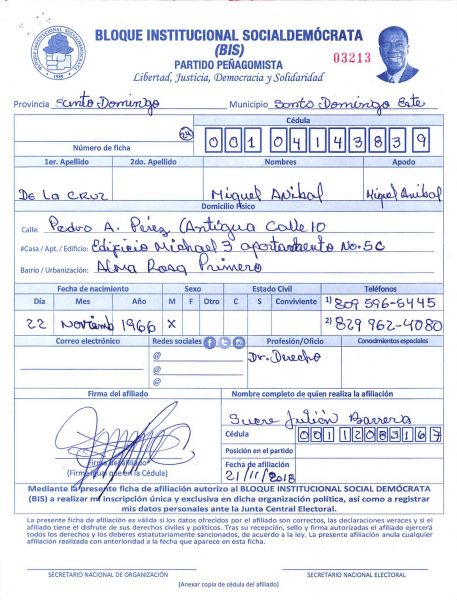 BLOQUE INSTITUCIONAL SOCIALDEMÓCRATA
(BIS)
03213
PARTIDO PEÑAGOMISTA
Libertad, Justicia, Democracia y Solidaridad
Provincia Santo Domingo Municipio Santo Domingo Este
Cédula
24 001 0414383 9
Número de ficha
1er. Apellido 2do. Apellido Nombres Apodo
DE LA CRUZ Miguel Anibal Miguel Anibal
Domicilio Físico
Calle: Pedro A. Pérez (Antigua Calle 10
#Casa / Apt. / Edificio: Edificio Michael 3 apartamento No. 5C
Barrio / Urbanización: Alma Rosa Primero
Fecha de nacimiento Sexo Estado Civil Teléfonos
Día Mes Año M F Otro C S Conviviente 1) 809 596-6445
22 Noviemb 1966 X 2) 829 962-4080
Correo electrónico Redes sociales Profesión/Oficio Conocimientos especiales
@ Dr. Derecho
@
@
Firma del afiliado Nombre completo de quien realiza la afiliación
Sucre Julián Barrera
Cédula 001 1208316 7
Posición en el partido
Firma del afiliado
Fecha de afiliación
(Firma igual que en la Cédula)
21/11/2018
Mediante la presente ficha de afiliación autorizo al BLOQUE INSTITUCIONAL SOCIAL DEMÓCRATA
(BIS) a realizar mi inscripción única y exclusiva en dicha organización política, así como a registrar
mis datos personales ante la Junta Central Electoral.
La presente ficha de afiliación es válida si los datos ofrecidos por el afiliado son correctos, las declaraciones veraces y si el
afiliado tiene el disfrute de sus derechos civiles y políticos. Tras su recepción, sello y firma autorizadas el afiliado ejercerá
todos los derechos y los deberes estatutariamente sancionados, de acuerdo a la ley. La presente afiliación anula cualquier
afiliación realizada con anterioridad a la fecha que aparece en esta ficha.
SECRETARIO NACIONAL DE ORGANIZACIÓN SECRETARIO NACIONAL ELECTORAL
(Anexar copia de cédula del afiliado)